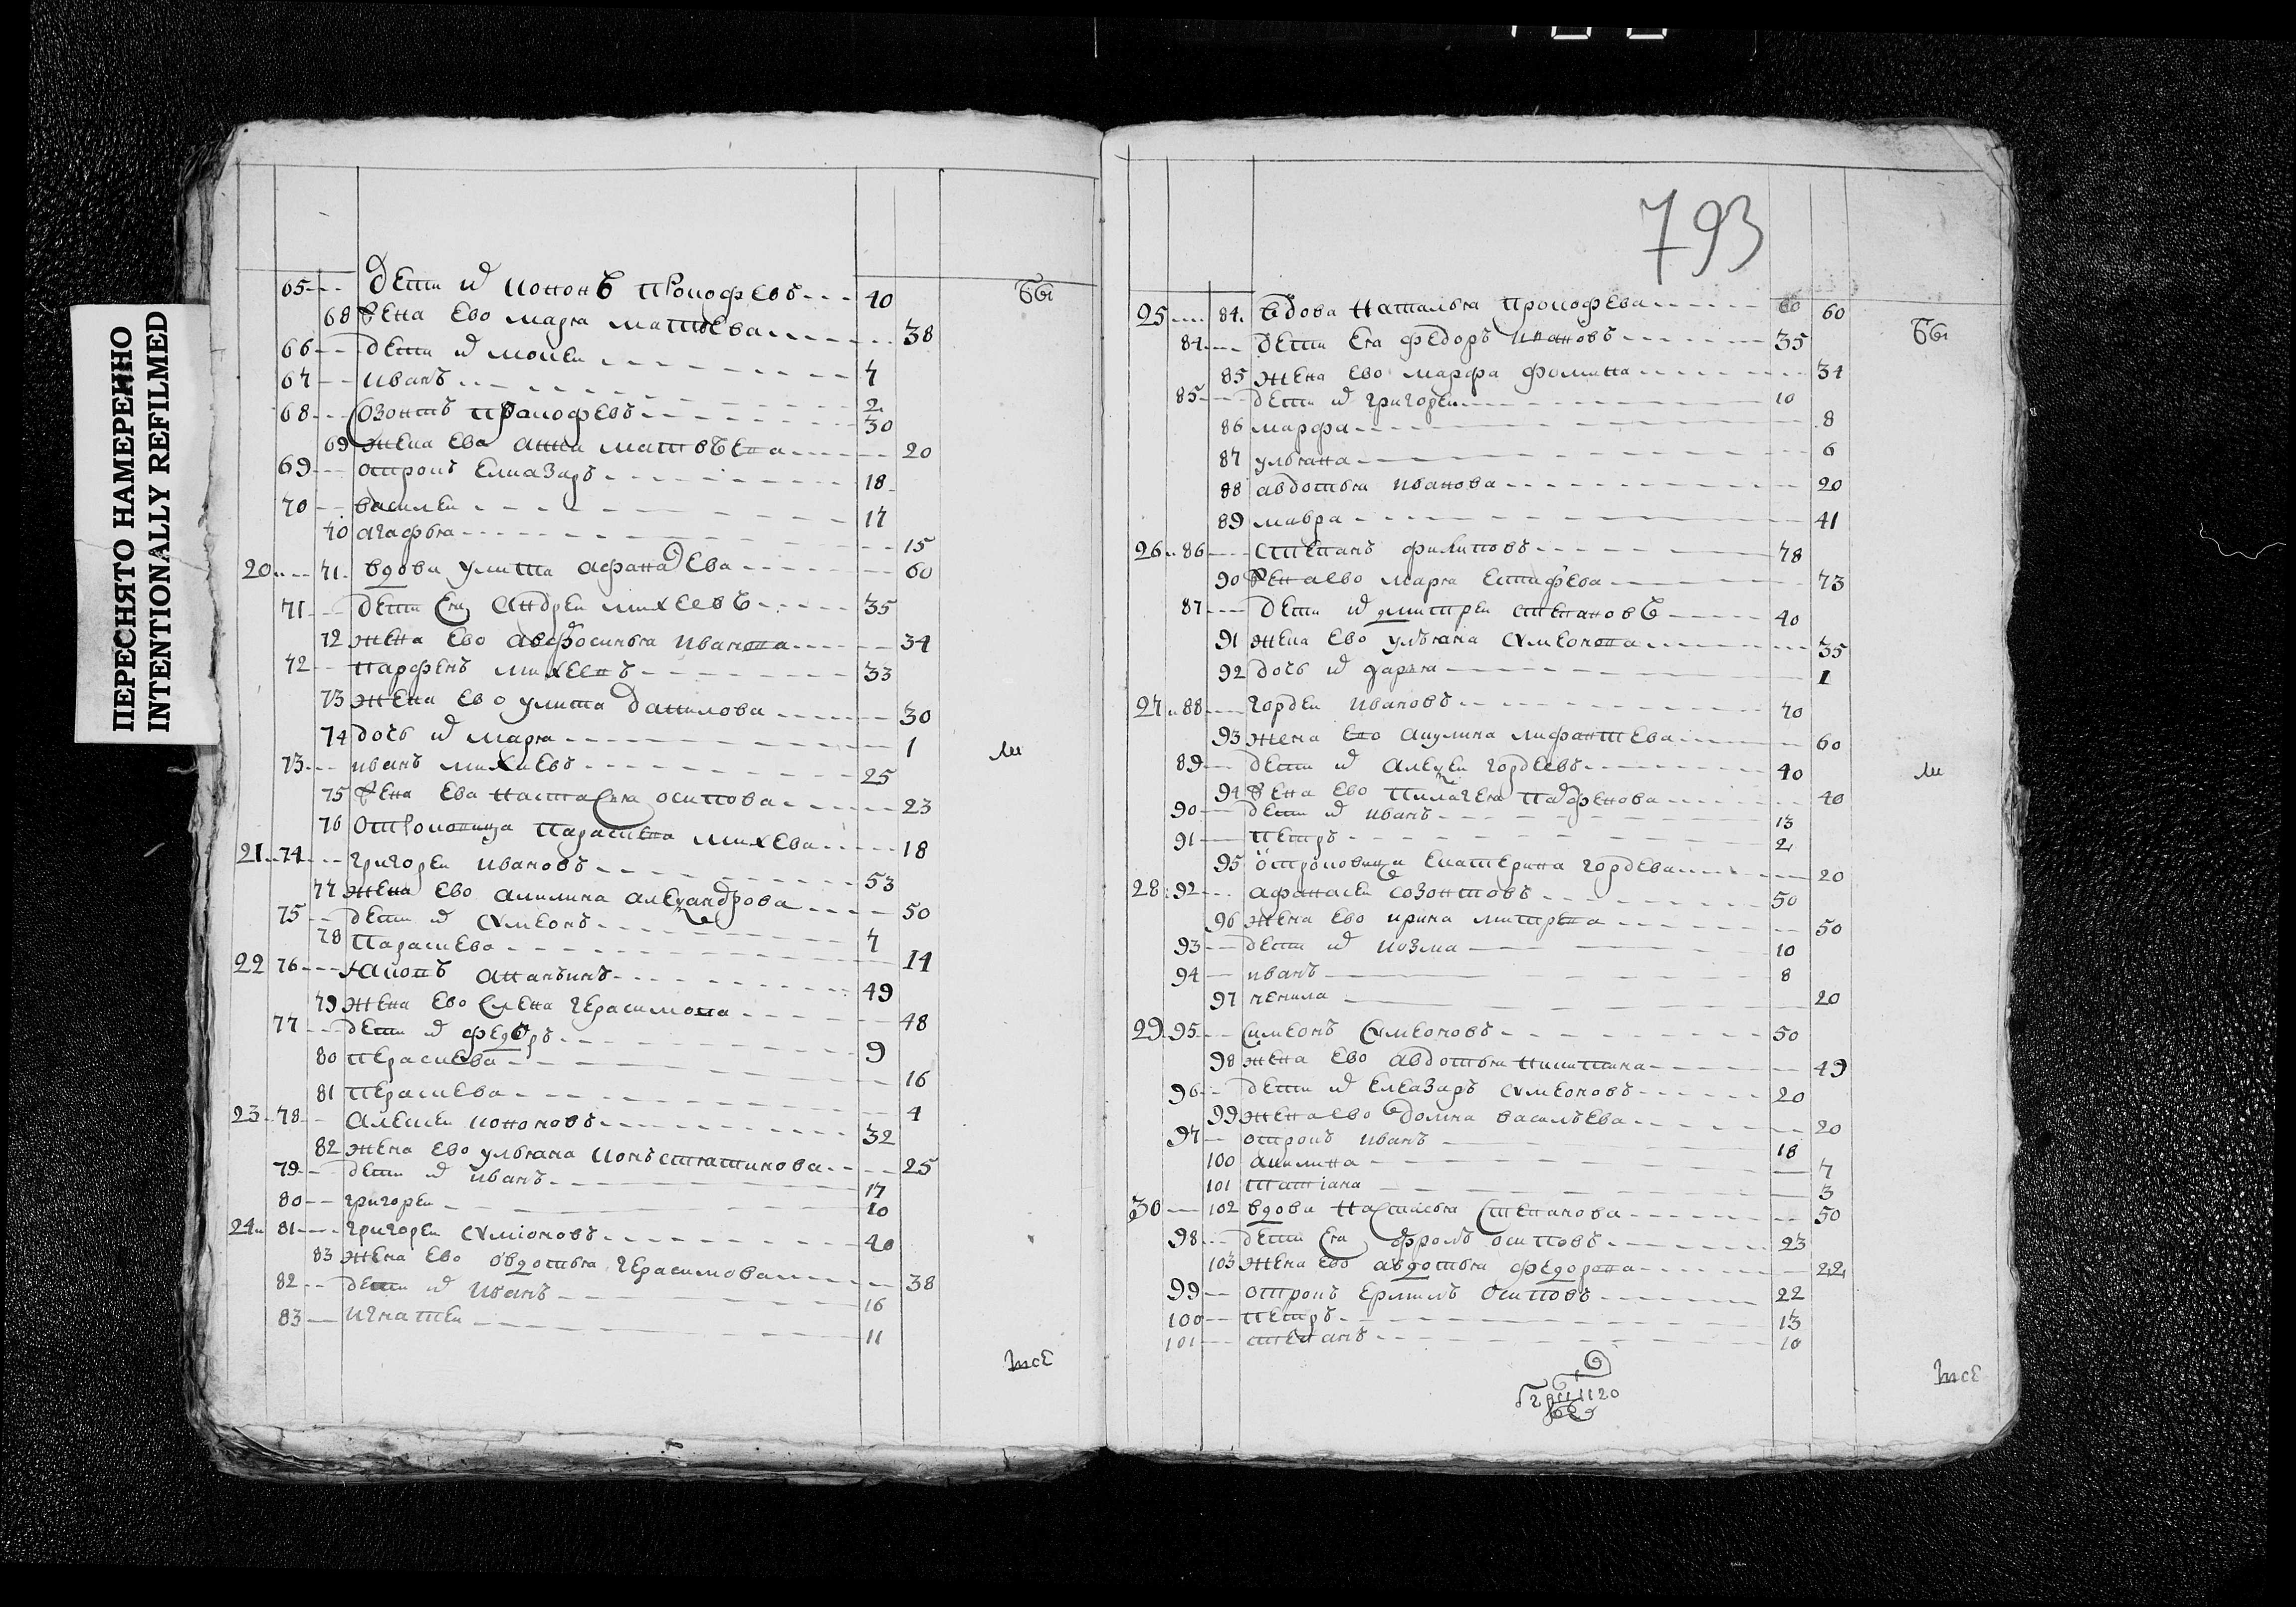 ПЕРЕСНЯТО НАМЕРЕННО
INTENTIONALLY REFILMED
65 дети иѡ кононъ прокофевъ 40
68 жена ево марѧ матвѣева 38
66 дети иѡ мокеи 7
67 иванъ 2
68 созонтъ прокофевъ 30
69 жена ева анна матвѣена 20
69 отрокъ елиазаръ 18
70 василеи 17
70 агафья 15
20 71 вдова улита афанадева 60
71 дети еѧ андреи михеевъ 35
72 жена ево авфросинья иванова 34
72 парфенъ михеевъ 33
73 жена ево улита данилова 30
74 дочь иѡ марѧ 1
73 иванъ михиевъ 25
75 жена ева настасѧ осипова 23
76 отроковица парасква михева 18
21 74 григореи ивановъ 53
77 жена ево акилина александрова 50
75 дети иѡ сѵмеонъ 7
78 парасцева 14
22 76 иаковъ ананьинъ 49
79 жена ево елена герасимова 48
77 дети иѡ федоръ 9
80 перасцева 16
81 перасцева 4
23 78 алексеи кононовъ 32
82 жена ево ульѧна конъстѧтинова 25
79 дети иѡ иванъ 17
80 григореи 10
24 81 григореи сѵмiоновъ 40
83 жена ево овдотьѧ герасимова 38
82 дети иѡ иванъ 16
83 игнатеи 11
бы
ли
все
793
25 84 вдова наталья прокофева 60 60
84 дети еѧ федоръ ивановъ 35
85 жена ево марфа фомина 34
85 дети иѡ григореи 10
86 марфа 8
87 ульѧна 6
88 авдотья иванова 20
89 мавра 41
26 86 степанъ филиповъ 78
90 жена ево марѧ естифева 73
87 дети иѡ дмитреи степановъ 40
91 жена ево улъѧна сѵмеонова 35
92 дочь иѡ даръѧ 1
27 88 гордеи ивановъ 70
93 жена ево акулина лифантева 60
89 дети иѡ алексеи гордеевъ 40
94 жена ево пилагеѧ парфенова 40
90 дети иѡ иванъ 13
91 петръ 2
95 отроковица екатерина гордева 20
28 92 афанасеи созонтовъ 50
96 жена ево ирина митрева 50
93 дети иѡ козма 10
94 иванъ 8
97 ненила 20
29 95 симеонъ сѵмеоновъ 50
98 жена ево авдотья никитина 49
96 дети иѡ елеазаръ сѵмеоновъ 20
99 жена ево домна василъева 20
97 отрокъ иванъ 18
100 акилина 7
101 татiана 3
30 102 вдова настасья степанова 50
98 дети еѧ фролъ осиповъ 23
103 жена ево авдотья федорова 22
99 отрокъ ермилъ осиповъ 22
100 петръ 13
101 степанъ 10
бы
ли
все